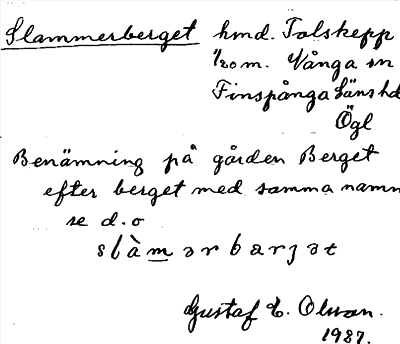 Slammerberget hmd. Tolskepp
1/20 m. Vånga sn
Finspånga Läns hd
Ögl
Benämning på gården Berget
efter berget med samma namn
se d.o
slàmərbarjət
Gustaf E. Olsson.
1987.